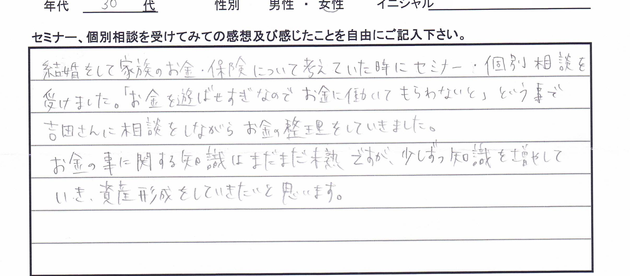 年代 30 代 性別 男性・女性 イニシャル
セミナー、個別相談を受けてみての感想及び感じたことを自由にご記入下さい。
結婚をして家族のお金・保険について考えていた時にセミナー・個別相談を
受けました。「お金を遊ばせすぎなのでお金に働いてもらわないと」という事で
吉田さんに相談をしながらお金の整理をしていきました。
お金の事に関する知識はまだまだ未熟ですが、少しずつ知識を増やして
いき、資産形成をしていきたいと思います。